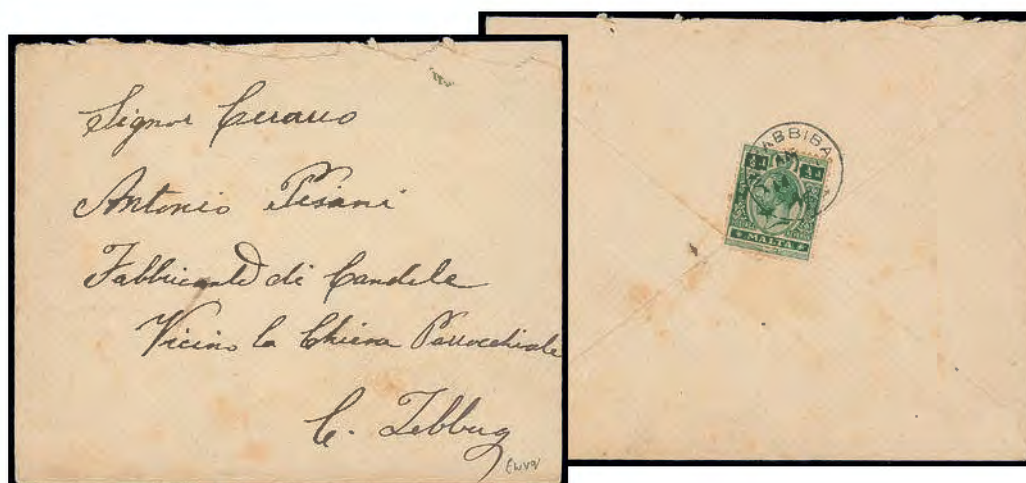 Signor Cerario
Antonio Pisani
Fabbricante di Candele
Vicino la Chiesa Parrocchiale
C. Zebbug
ABBIBA
½d ½d
MALTA